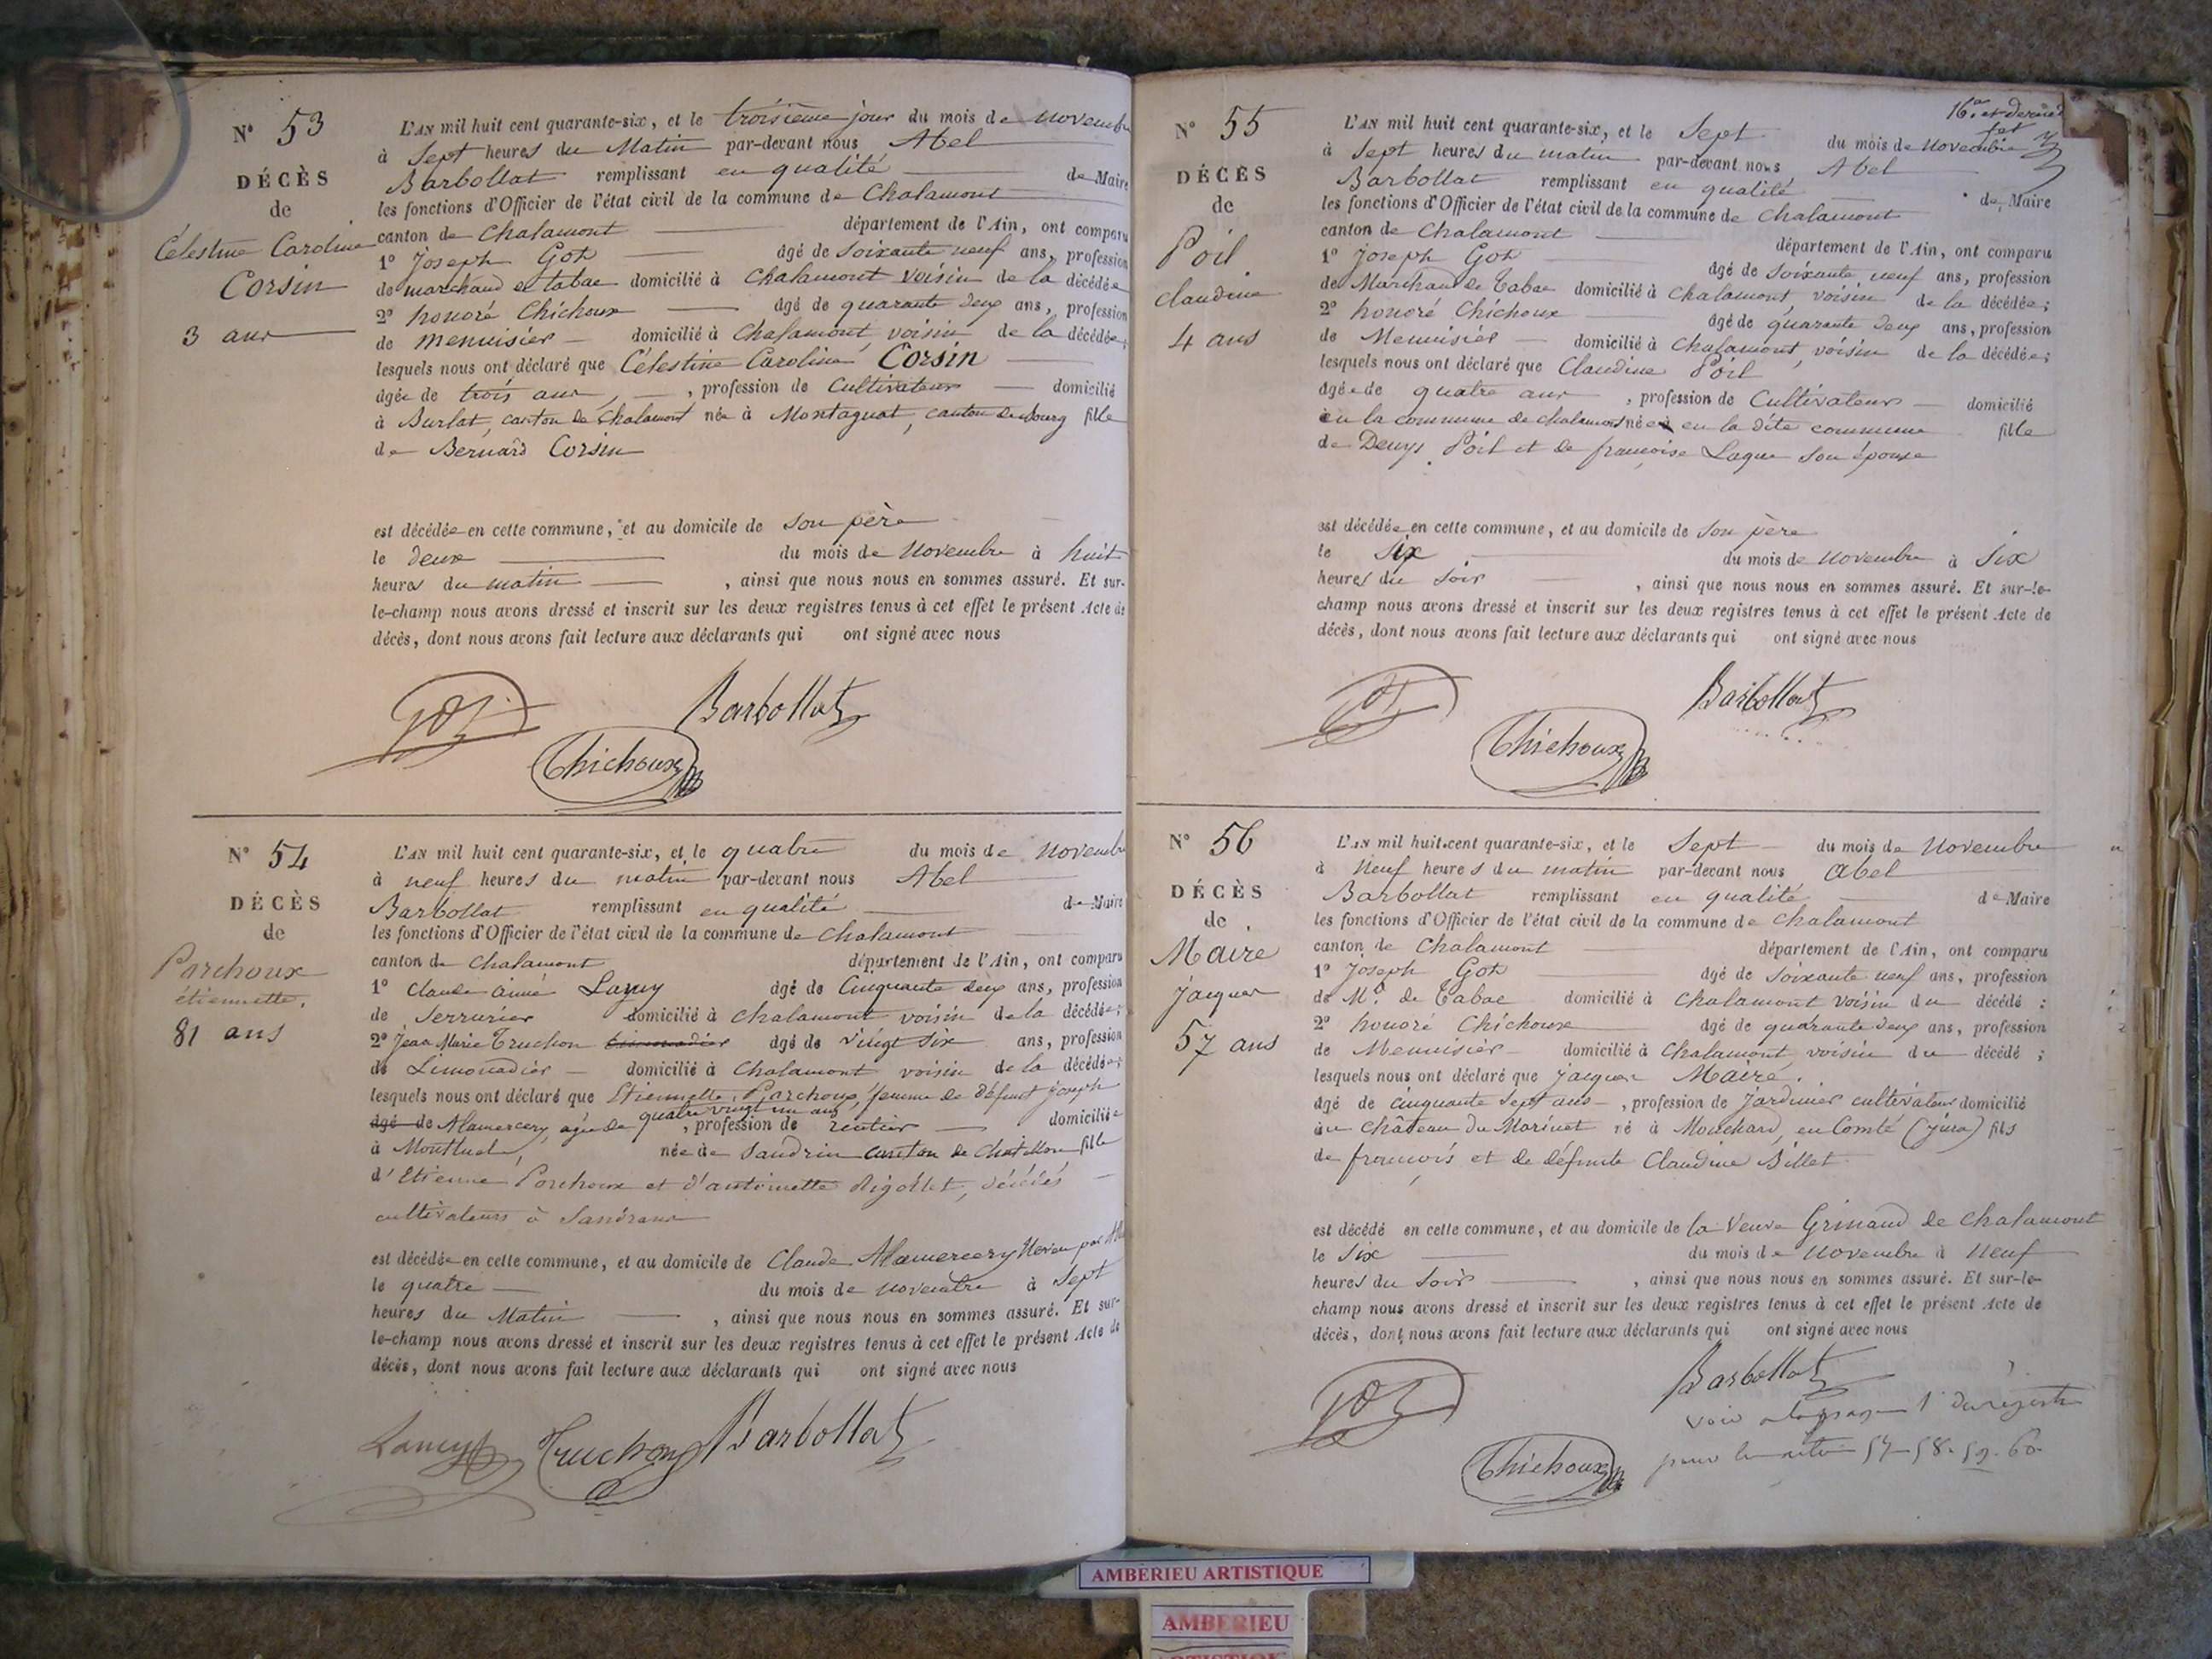 N° 53
DÉCÈS
de
Célestine Caroline
Corsin
3 ans
L'AN mil huit cent quarante-six, et le troisième jour du mois de novembre
à Sept heures du Matin par-devant nous Abel
Barbollat remplissant en qualité de Maire
les fonctions d'Officier de l'état civil de la commune de Chalamont
canton de Chalamont département de l'Ain, ont comparu
1° Joseph Got âgé de soixante neuf ans, profession
de marchand de tabac domicilié à Chalamont voisin de la décédée
2° honoré Chichoux âgé de quarante deux ans, profession
de menuisier domicilié à Chalamont, voisin de la décédée;
lesquels nous ont déclaré que Célestine Caroline Corsin
âgée de trois ans, profession de Cultivateur domicilié
à Burlat, canton de Chalamont née à Montagnat, canton de bourg fille
de Bernard Corsin
est décédée en cette commune, et au domicile de son père
le deux du mois de Novembre à huit
heures du matin, ainsi que nous nous en sommes assuré. Et sur-
le-champ nous avons dressé et inscrit sur les deux registres tenus à cet effet le présent Acte de
décès, dont nous avons fait lecture aux déclarants qui ont signé avec nous
Got
Barbollat
Chichoux
N° 54
DÉCÈS
de
Porchoux
étiennette.
81 ans
L'AN mil huit cent quarante-six, et le quatre du mois de Novembre
à neuf heures du matin par-devant nous Abel
Barbollat remplissant en qualité de Maire
les fonctions d'Officier de l'état civil de la commune de Chalamont
canton de Chalamont département de l'Ain, ont comparu
1° Claude aimé Lamy âgé de Cinquante deux ans, profession
de Serrurier domicilié à Chalamont voisin de la décédée;
2° Jean Marie Truchon limonadier âgé de Vingt Six ans, profession
de Limonadier domicilié à Chalamont voisin de la décédée;
lesquels nous ont déclaré que Etiennette Porchoux, femme de défunt Joseph
quatre vingt un ans
âgé de Alamercery, agée de, profession de rentier domiciliée
à Montluel, née de Sandrin canton de Chatillon fille
d'Etienne Porchoux et d'antoinette Rigollet, décédés
cultivateurs à Sandrans
est décédée en cette commune, et au domicile de Claude Alamercery Neveu par
le quatre du mois de novembre à Sept
heures du Matin, ainsi que nous nous en sommes assuré. Et sur-
le-champ nous avons dressé et inscrit sur les deux registres tenus à cet effet le présent Acte de
décès, dont nous avons fait lecture aux déclarants qui ont signé avec nous
Lamy Truchon Barbollat
16e et dernier
N° 55
DÉCÈS
de
Poil
claudine
4 ans
L'AN mil huit cent quarante-six, et le Sept du mois de Novembre
à Sept heures du matin par-devant nous Abel
Barbollat remplissant en qualité de Maire
les fonctions d'Officier de l'état civil de la commune de Chalamont
canton de Chalamont département de l'Ain, ont comparu
1° Joseph Got âgé de soixante neuf ans, profession
de Marchand de Tabac domicilié à Chalamont, voisin de la décédée;
2° honoré Chichoux âgé de quarante deux ans, profession
de Menuisier domicilié à Chalamont, voisin de la décédée;
lesquels nous ont déclaré que Claudine Poil
âgée de quatre ans, profession de Cultivateur domicilié
en la commune de Chalamont née à en la dite commune fille
de Denys Poil et de françoise Lague son épouse
est décédée en cette commune, et au domicile de son père
le Six du mois de novembre à Six
heures du Soir, ainsi que nous nous en sommes assuré. Et sur-le-
champ nous avons dressé et inscrit sur les deux registres tenus à cet effet le présent Acte de
décès, dont nous avons fait lecture aux déclarants qui ont signé avec nous
Got
Barbollat
Chichoux
N° 56
DÉCÈS
de
Maire
jacques
57 ans
L'AN mil huit cent quarante-six, et le Sept du mois de Novembre
à Neuf heures du matin par-devant nous Abel
Barbollat remplissant en qualité de Maire
les fonctions d'Officier de l'état civil de la commune de Chalamont
canton de Chalamont département de l'Ain, ont comparu
1° Joseph Got âgé de soixante neuf ans, profession
de Md de Tabac domicilié à Chalamont voisin du décédé;
2° honoré Chichoux âgé de quarante deux ans, profession
de Menuisier domicilié à Chalamont, voisin du décédé;
lesquels nous ont déclaré que jacques Maire.
âgé de cinquante sept ans, profession de Jardinier cultivateur domicilié
au Château du Marinet né à Mouchard, en Comté (jura) fils
de françois et de défunte Claudine Billet
est décédé en cette commune, et au domicile de la Veuve Grinand de Chalamont
le Six du mois de Novembre à Neuf
heures du Soir, ainsi que nous nous en sommes assuré. Et sur-le-
champ nous avons dressé et inscrit sur les deux registres tenus à cet effet le présent Acte de
décès, dont nous avons fait lecture aux déclarants qui ont signé avec nous
Got
Barbollat
Chichoux
voir a la page 1 du registre
pour les actes 57-58-59-60
AMBERIEU ARTISTIQUE
AMBERIEU
ARTISTIQUE